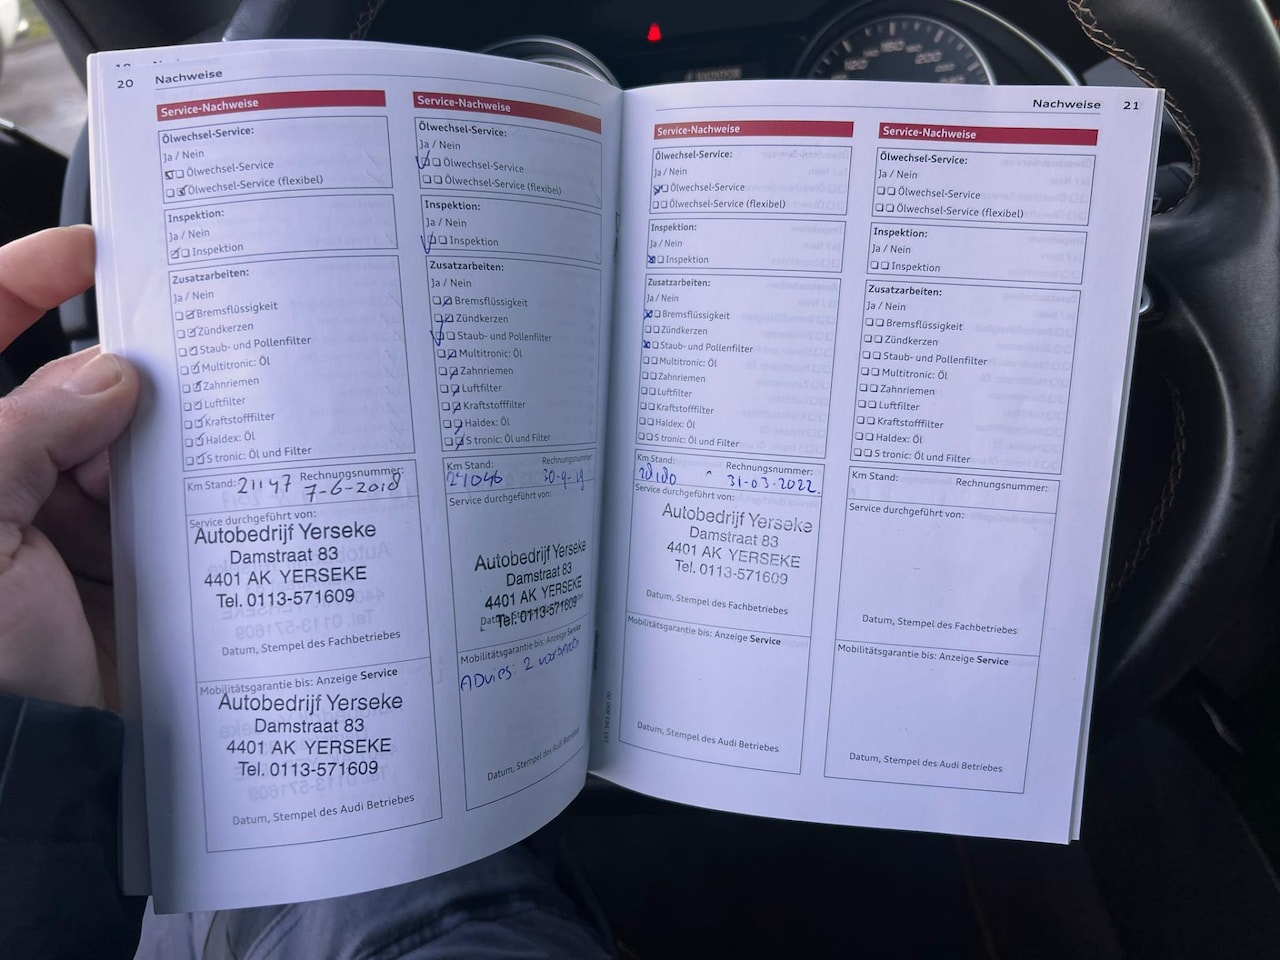 20 Nachweise
Service-Nachweise
Ölwechsel-Service:
Ja / Nein
Ölwechsel-Service
Ölwechsel-Service (flexibel)
Inspektion:
Ja / Nein
Inspektion
Zusatzarbeiten:
Ja / Nein
Bremsflüssigkeit
Zündkerzen
Staub- und Pollenfilter
Multitronic: Öl
Zahnriemen
Luftfilter
Kraftstofffilter
Haldex: Öl
S tronic: Öl und Filter
Km Stand: Rechnungsnummer:
21147 7-6-2018
Service durchgeführt von:
Autobedrijf Yerseke
Damstraat 83
4401 AK YERSEKE
Tel. 0113-571609
Datum, Stempel des Fachbetriebes
Mobilitätsgarantie bis: Anzeige Service
Autobedrijf Yerseke
Damstraat 83
4401 AK YERSEKE
Tel. 0113-571609
Datum, Stempel des Audi Betriebes
Service-Nachweise
Ölwechsel-Service:
Ja / Nein
Ölwechsel-Service
Ölwechsel-Service (flexibel)
Inspektion:
Ja / Nein
Inspektion
Zusatzarbeiten:
Ja / Nein
Bremsflüssigkeit
Zündkerzen
Staub- und Pollenfilter
Multitronic: Öl
Zahnriemen
Luftfilter
Kraftstofffilter
Haldex: Öl
S tronic: Öl und Filter
Km Stand: Rechnungsnummer:
24046 30-9-19
Service durchgeführt von:
Autobedrijf Yerseke
Damstraat 83
4401 AK YERSEKE
Tel. 0113-571609
Mobilitätsgarantie bis: Anzeige Service
ADvies: 2
Datum, Stempel des Audi Betriebes
Nachweise 21
Service-Nachweise
Ölwechsel-Service:
Ja / Nein
Ölwechsel-Service
Ölwechsel-Service (flexibel)
Inspektion:
Ja / Nein
Inspektion
Zusatzarbeiten:
Ja / Nein
Bremsflüssigkeit
Zündkerzen
Staub- und Pollenfilter
Multitronic: Öl
Zahnriemen
Luftfilter
Kraftstofffilter
Haldex: Öl
S tronic: Öl und Filter
Km Stand: Rechnungsnummer:
31-03-2022.
Service durchgeführt von:
Autobedrijf Yerseke
Damstraat 83
4401 AK YERSEKE
Tel. 0113-571609
Datum, Stempel des Fachbetriebes
Mobilitätsgarantie bis: Anzeige Service
Datum, Stempel des Audi Betriebes
Service-Nachweise
Ölwechsel-Service:
Ja / Nein
Ölwechsel-Service
Ölwechsel-Service (flexibel)
Inspektion:
Ja / Nein
Inspektion
Zusatzarbeiten:
Ja / Nein
Bremsflüssigkeit
Zündkerzen
Staub- und Pollenfilter
Multitronic: Öl
Zahnriemen
Luftfilter
Kraftstofffilter
Haldex: Öl
S tronic: Öl und Filter
Km Stand: Rechnungsnummer:
Service durchgeführt von:
Datum, Stempel des Fachbetriebes
Mobilitätsgarantie bis: Anzeige Service
Datum, Stempel des Audi Betriebes